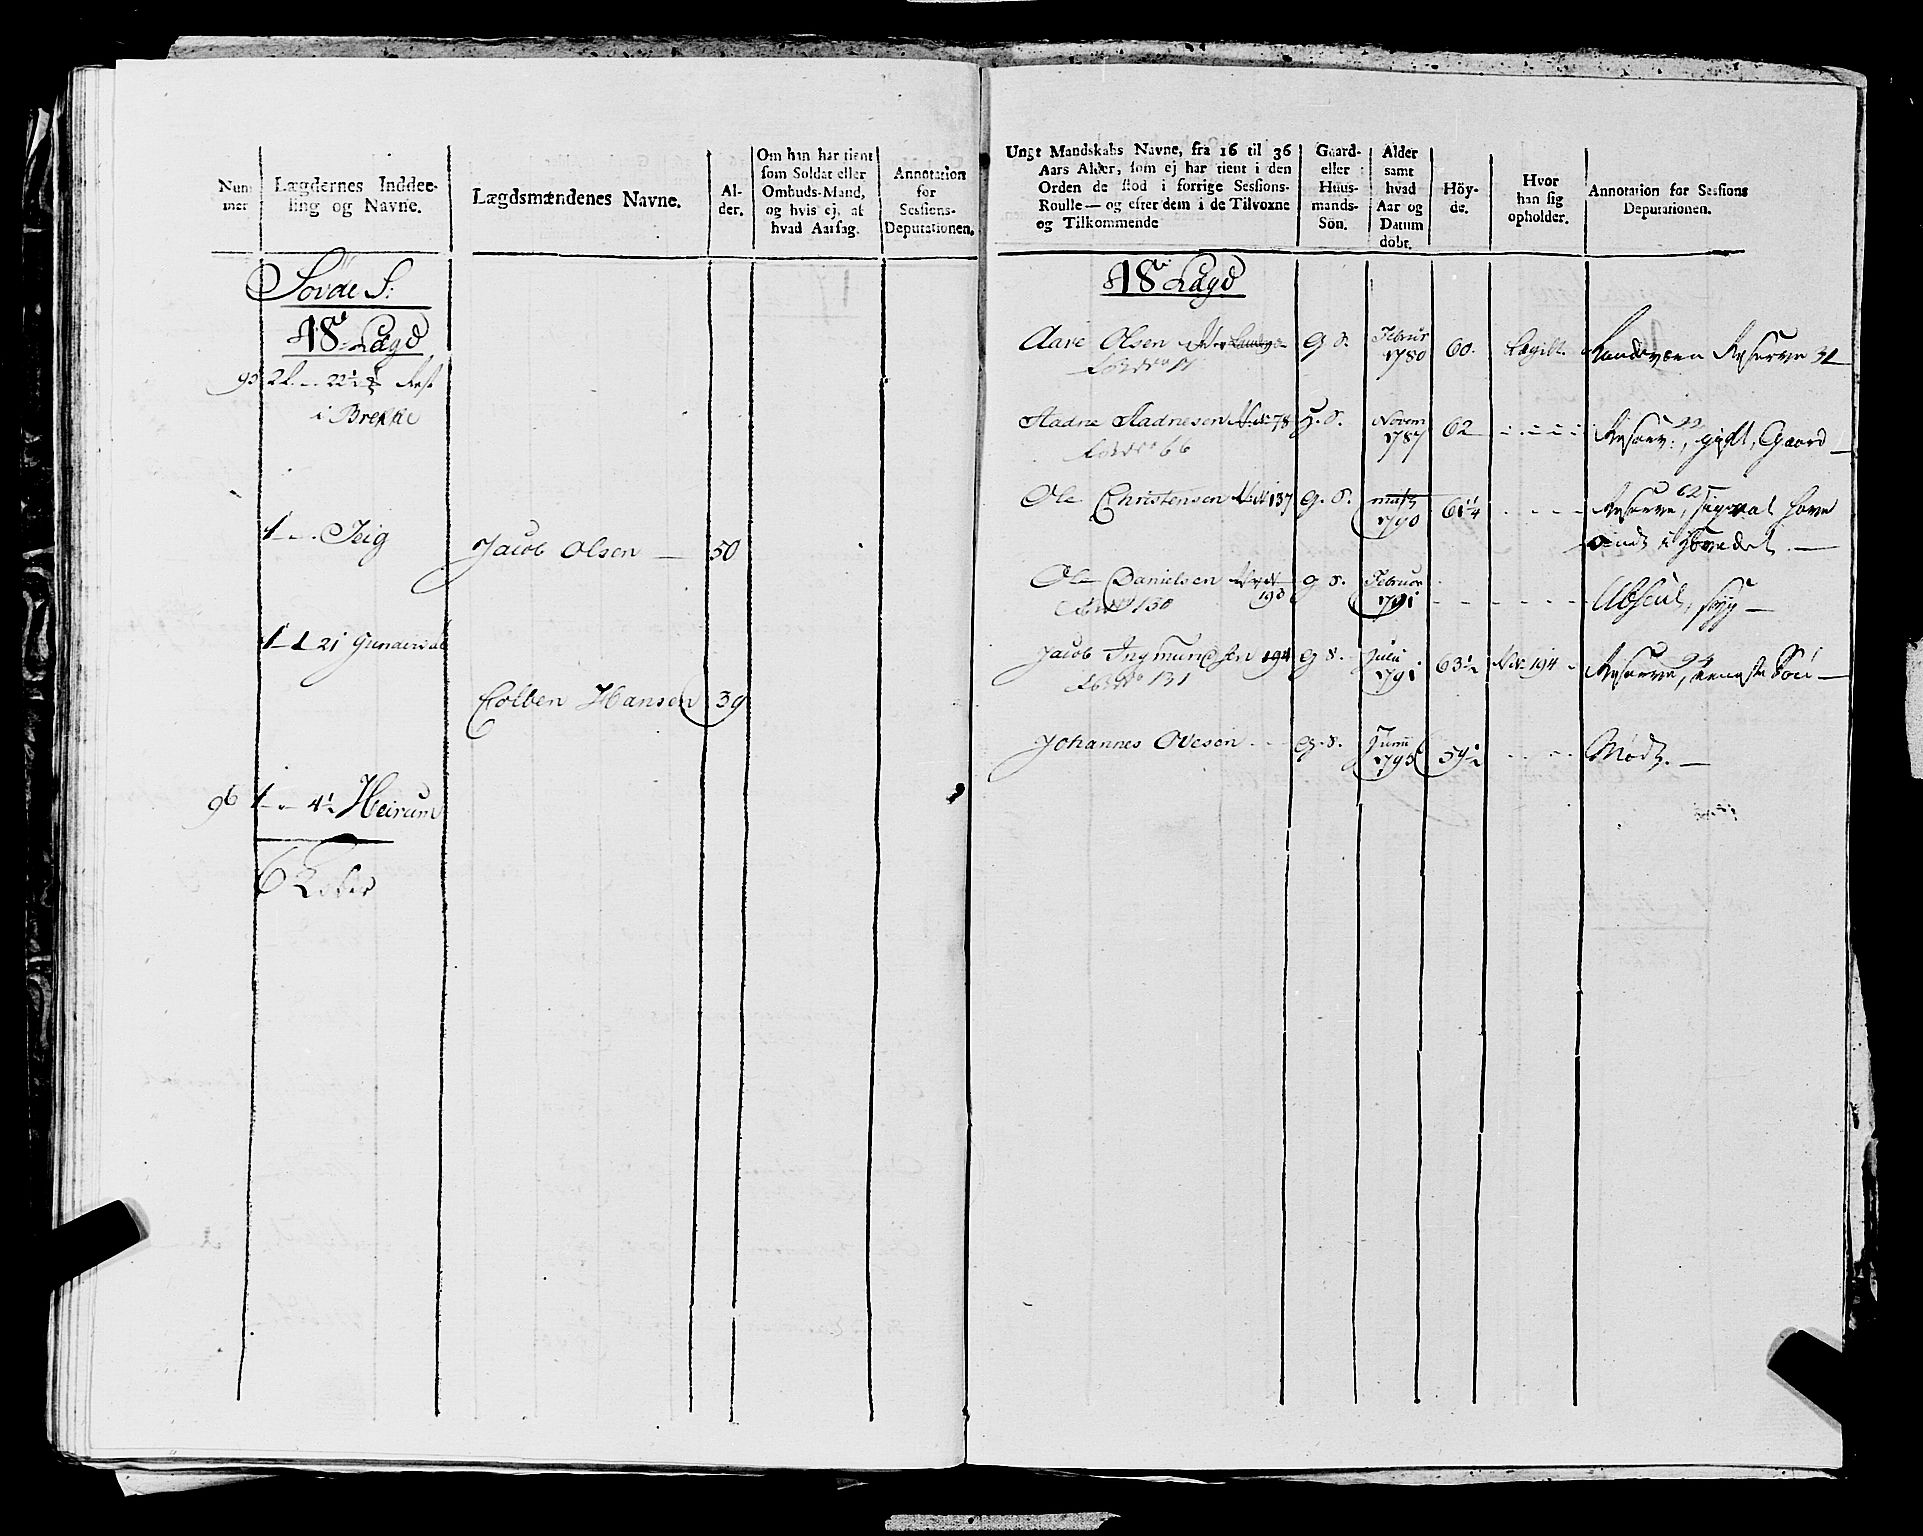 Num-
mer
Lægdernes Inddee-
ling og Navne.
Lægdsmændenes Navne.
Al-
der.
Om han har tient
som Soldat eller
Ombuds-Mand,
og hvis ej, af
hvad Aarsag.
Annotation
for
Sessions-
Deputationen.
Søvde S:
18 Lægd
95 2 22½ Rest
i Brekke
1 - Teig
Jacob Olsen — 50
1 - 1 21 Gundersdal
Colben Hansen 39
96 1 - 4½ Heirum
6
Ungt Mandskabs Navne, fra 16 til 36
Aars Alder, som ej har tient i den
Orden de stod i forrige Sessions-
Roulle — og efter dem i de Tilvoxne
og Tilkommende
Gaard-
eller
Huus-
mands-
Søn.
Alder
samt
hvad
Aar og
Datum
døbt.
Höy-
de.
Hvor
han sig
opholder.
Annotation for Sessions
Deputationen.
18 Lægd
Aare Olsen G S. Februr 1780 60. Reserve 31
Hadne Hadnesen No 78 H. S. Novem 1787 62 Reserv:, gift, Gaard
66
Ole Christensen 137 G. S. 1790 61¼ Reserve,
i Hovedet. —
Ole Danielsen 193 G S. Februar 1791 - - - - Absent, syg —
130
Jacob Ingmundsen 194 G S. Julii 1791 63½ No 194 Reserve, eeneste Søn —
131
Johannes Ovesen - - G. S. Junii 1793 59½ - - - Mødt. —